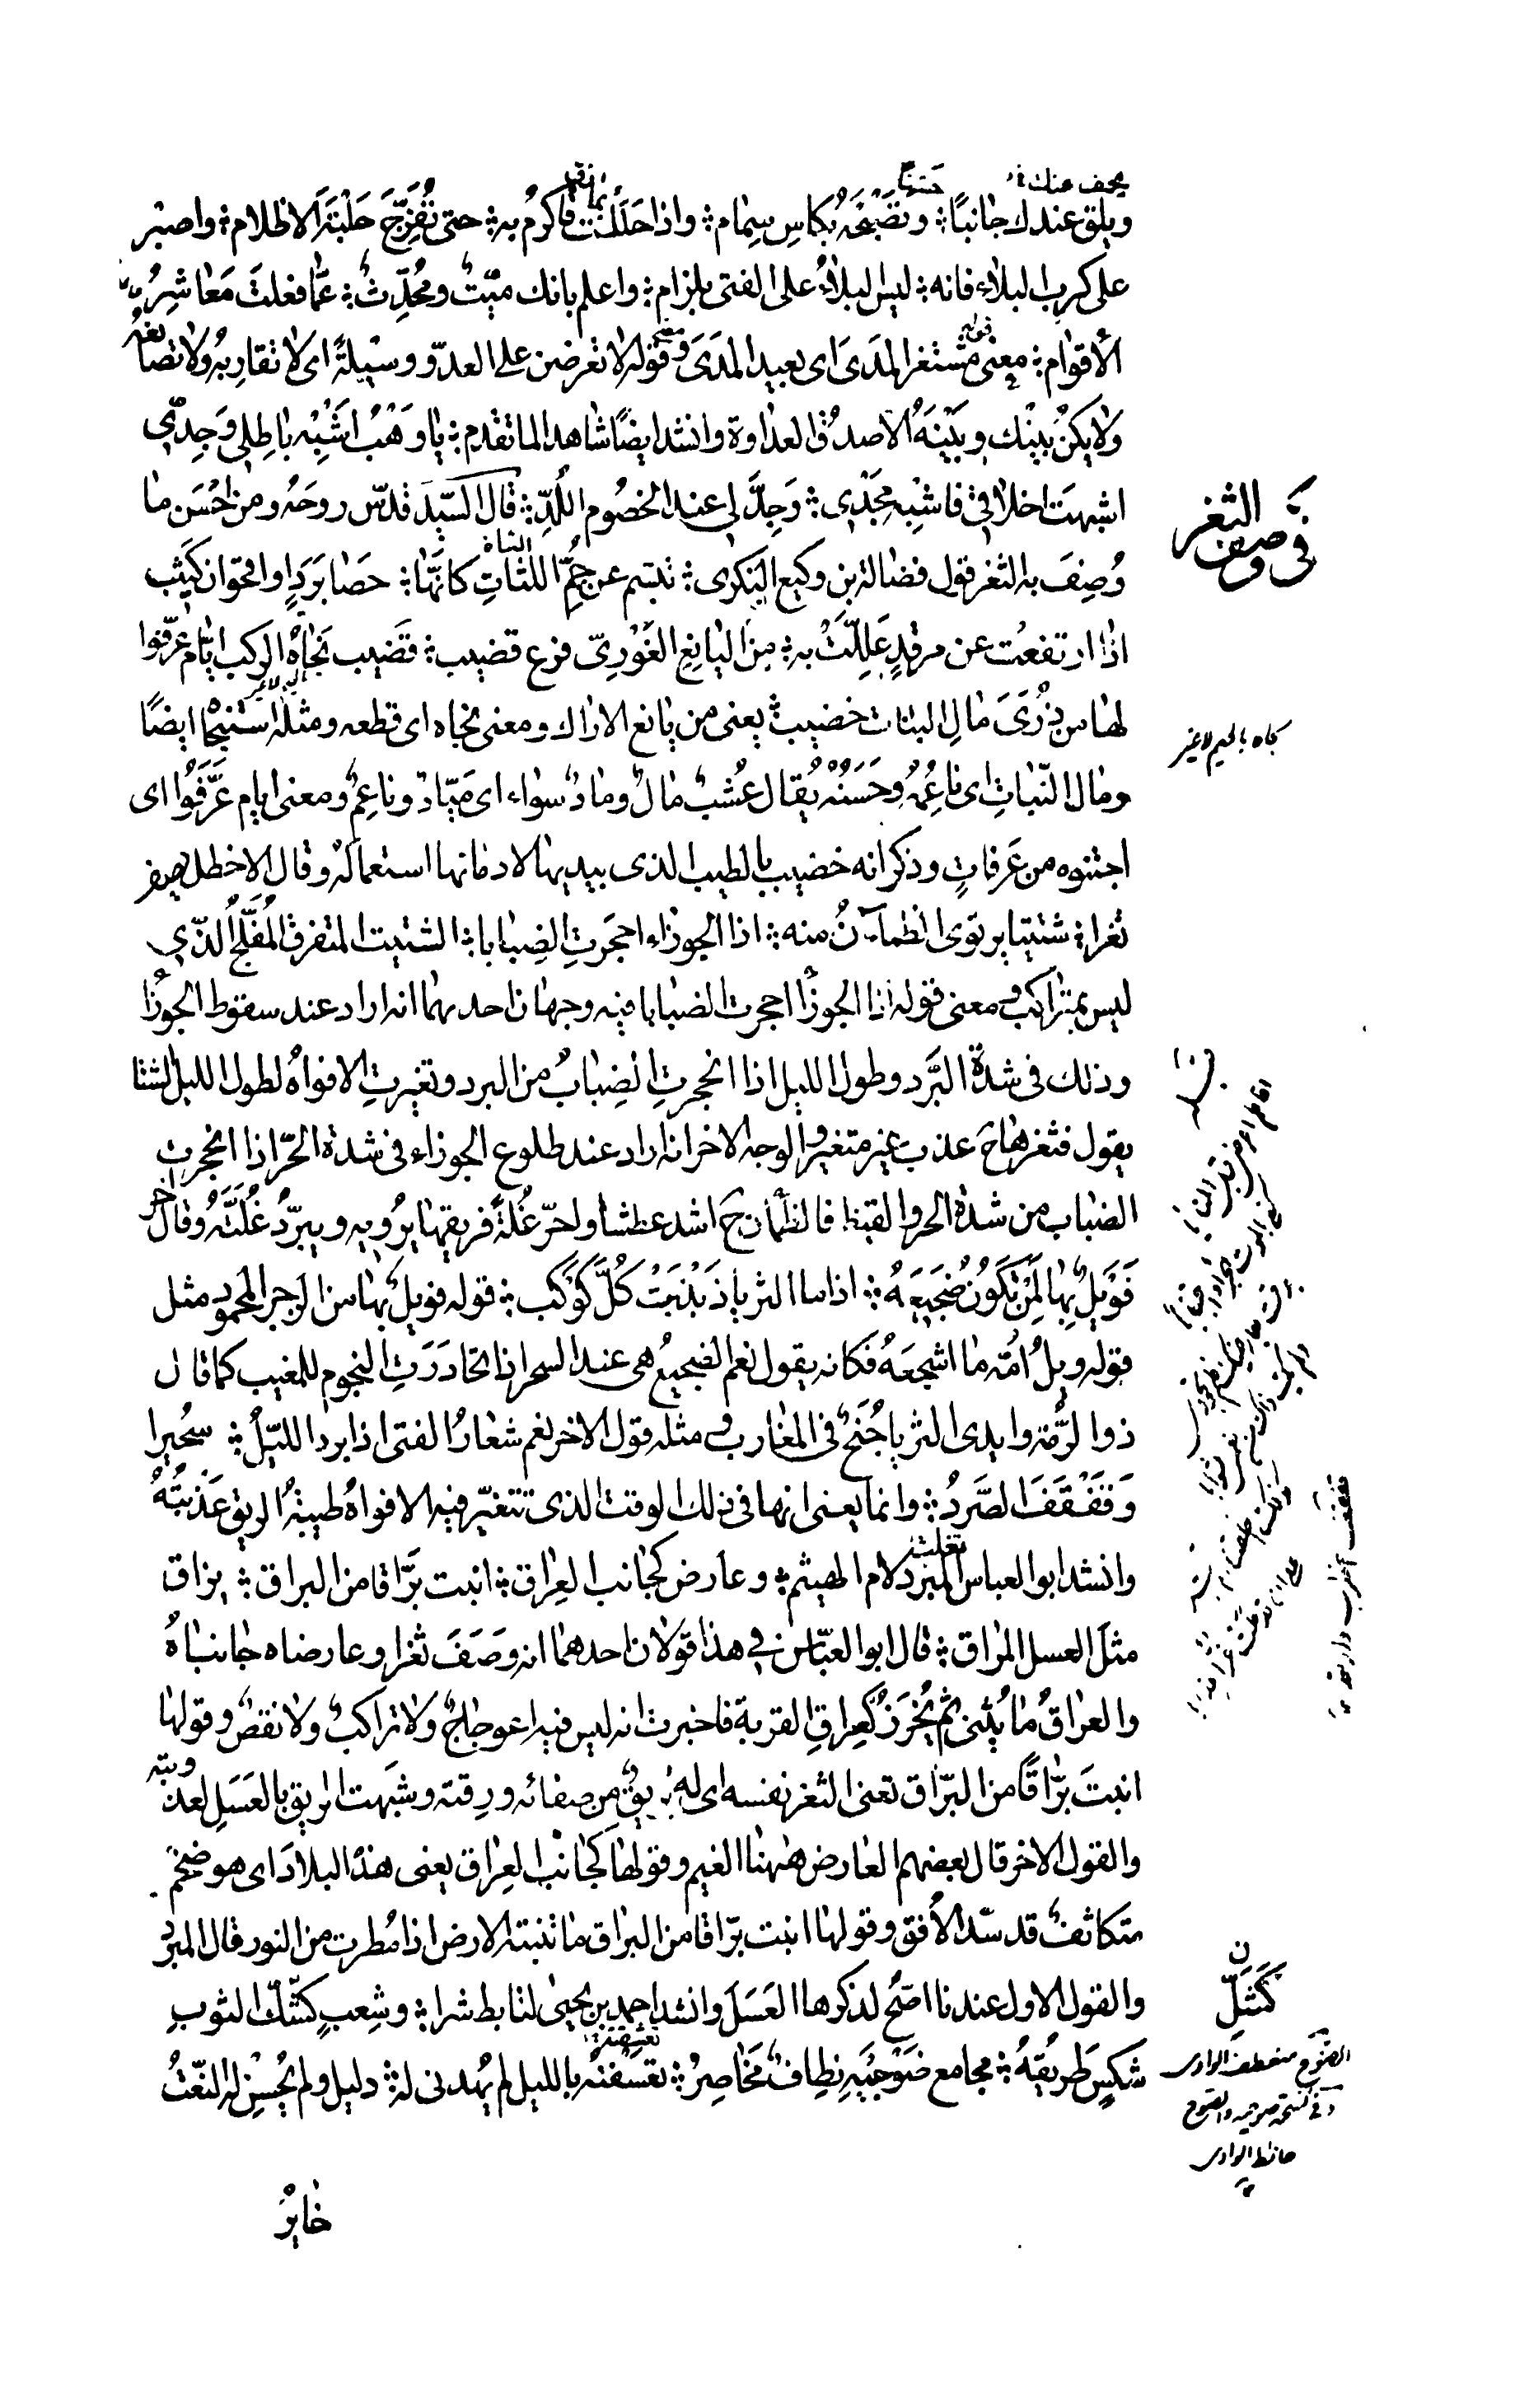 يجف عنك
خشنا
ويلق عندك جانبًا ؛ وتضبحَهُ بكاسِ سِمام ؛ واذا حللت فاكرمُ به ؛ حتى تُفَرِّجَ حَلْبَةَ الاظلام ؛ واصبر
على كرب البلاء فانه ؛ ليس البلاءُ على الفتى بلزام ؛ واعلم بانك ميّتٌ ومُحَدِّثٌ ؛ عمّا فعلتَ مَعاشِرُ
الأقوام ؛ معنى قوله مستنغر المدَى اى بعيد المدَى ومعنى قوله لا تعرضن على العدوّ وسيلةً اى لا تقاربهُ ولا تصانعهُ
ولا يكنْ بينك وبَيْنَهُ الا صدقُ العداوة وانشد ايضًا شاهدا لما تقدم ؛ يا وَهْبُ اشبِه باطلِى وَجِدّى
اشبهتَ اخلاقى فاشبِه مجَدْى ؛ وَجِدَّ لى عند الخصُوم اللُدِّ ؛ قال السّيد قدّس روحَهُ ومن احْسَن ما
وُصِفَ به الثغر قول فضالة بن وكيع البَكرى ؛ تبسّم عن حُمِّ اللثاتِ كانَّها ؛ حصا بَرَدٍ او اقحوان كثيب
اذا ارتفعت عن مرقدٍ عَلِلَتْ به ؛ مِنَ اليانِعِ الغَوْرِىّ فرع قضيب ؛ قضيب نجاهُ الركب ايّام عرّفوا
لها من ذُرَى مالِ النبات خضيب ؛ يعنى من يانع الاراك ومعنى نجاه اى قطعه ومثله استنجا ايضًا
ومال النّباتِ اى ناعِمُهُ وحَسَنُهُ يُقال عُشْبٌ مالٌ ومادٌ سواء اى مَيّادٌ وناعِمٌ ومعنى ايام عَرَّفوُا اى
اجتنوه من عَرفاتٍ وذكر انه خضيب بالطيب الذى بيديها لادمانها استعمالَهُ وقال الاخطل يصف
ثغرا ؛ شتيتا يرتوى الظمآنُ منه ؛ اذا الجوزاء احجَرتِ الضِبابا ؛ الشتيت المتفرق المُفَلَّجُ الذى
ليس بمتراكب ومعنى قوله اذا الجوزا احجرت الضبابا فيه وجهان احدهما انه اراد عند سقوط الجوزا
وذلك فى شدة البَرَد وطول الليل اذا انحجرتِ الضِبابُ من البرد وتغيرتِ الافواهُ لطول الليل الشتا
يقول فثغرها ح عذب غير متغير والوجه الاخر انه اراد عند طلوع الجوزاء فى شدة الحرّ اذا انحجرت
الضباب من شدة الحر والقيظ فالظمأن ح اشد عطشا واحرّ غُلةً فريقها يُرويه ويبرّدُ غُلَتَّهُ وقال اخر
فَوَيْلٌ بِها لِمَنْ تَكُونُ ضَجَيعَهُ ؛ اذا ما الثريا ذَبْذَبَتْ كُلَّ كَوْكَب ؛ قوله فويلٌ بها من الزجر المحمود مثل
قوله ويلُ أُمّه ما اشجعَهُ فكانه يقول نعم الضجيعُ هى عند السحر اذا تحادَرَتِ النجوم للمغيب كما قال
ذو الرُّمّة وايدى الثريا جُنَحٌ فى المغارب ومثله قول الاخر نعم شعارُ الفتى اذا برد الليّلُ ؛ سُحيرا
وَقَفْقَفَ الصَّرِدُ ؛ وانما يعنى انها فى ذلك الوقت الذى تتغيّر فيه الافواهُ طيبةُ الريق عَذْبَتُهُ
وانشد ابو العباس المبرد لام الهيثم ؛ وعارض كجانب العِراق ؛ انبت برّاقا من البراق ؛ بزاق
مثلَ العسل المراق ؛ قال ابو العبّاس فى هذا قولان احدهما انه وصَفَ ثغرا وعارضاه جانباهُ
والعراقُ ما يُثنى ثم يُخرَزُ كَعِراقِ القربة فاخبرت انه ليس فيه اعوجاجٌ ولا تراكبٌ ولا نقصٌ وقولها
انبتَ برّاقًا من البرّاق تعنى الثغر نفسه اى له بريقٌ من صفائه ورِقته وشبهت الريق بالعَسَلِ لعذوبته
والقول الاخر قال بعضهم العارض هٰهنا الغيم وقولها كجانب العِراق يعنى هذه البلادَ اى هو ضخم
متكاثفٌ قد سدّ الأفق وقولها انبت برّاقا من البراق ما تنبته الارض اذا مُطرت من النور قال المبرد
والقول الاول عندنا اصحّ لذكرها العَسَلَ وانشد احمد بن يحيى لتابط شرا ؛ وشِعبٍ كشَلّ الثوبِ
شكسٍ طَريقُهُ ؛ مجامع ضَوْجَيْهِ نِطافٌ مَخَاصِرُ ؛ تعسّفتُه بالليل لم يُهدنى له ؛ دليل ولم يُحْسِن له النّعْتَ
خابِرُ
فى وصف الثغر
نجاه بالجيم لا غير
كَشَلِّ
الضوج منعطف الوادى
وفى نسخة صوحيه والصوح
حائط الوادى